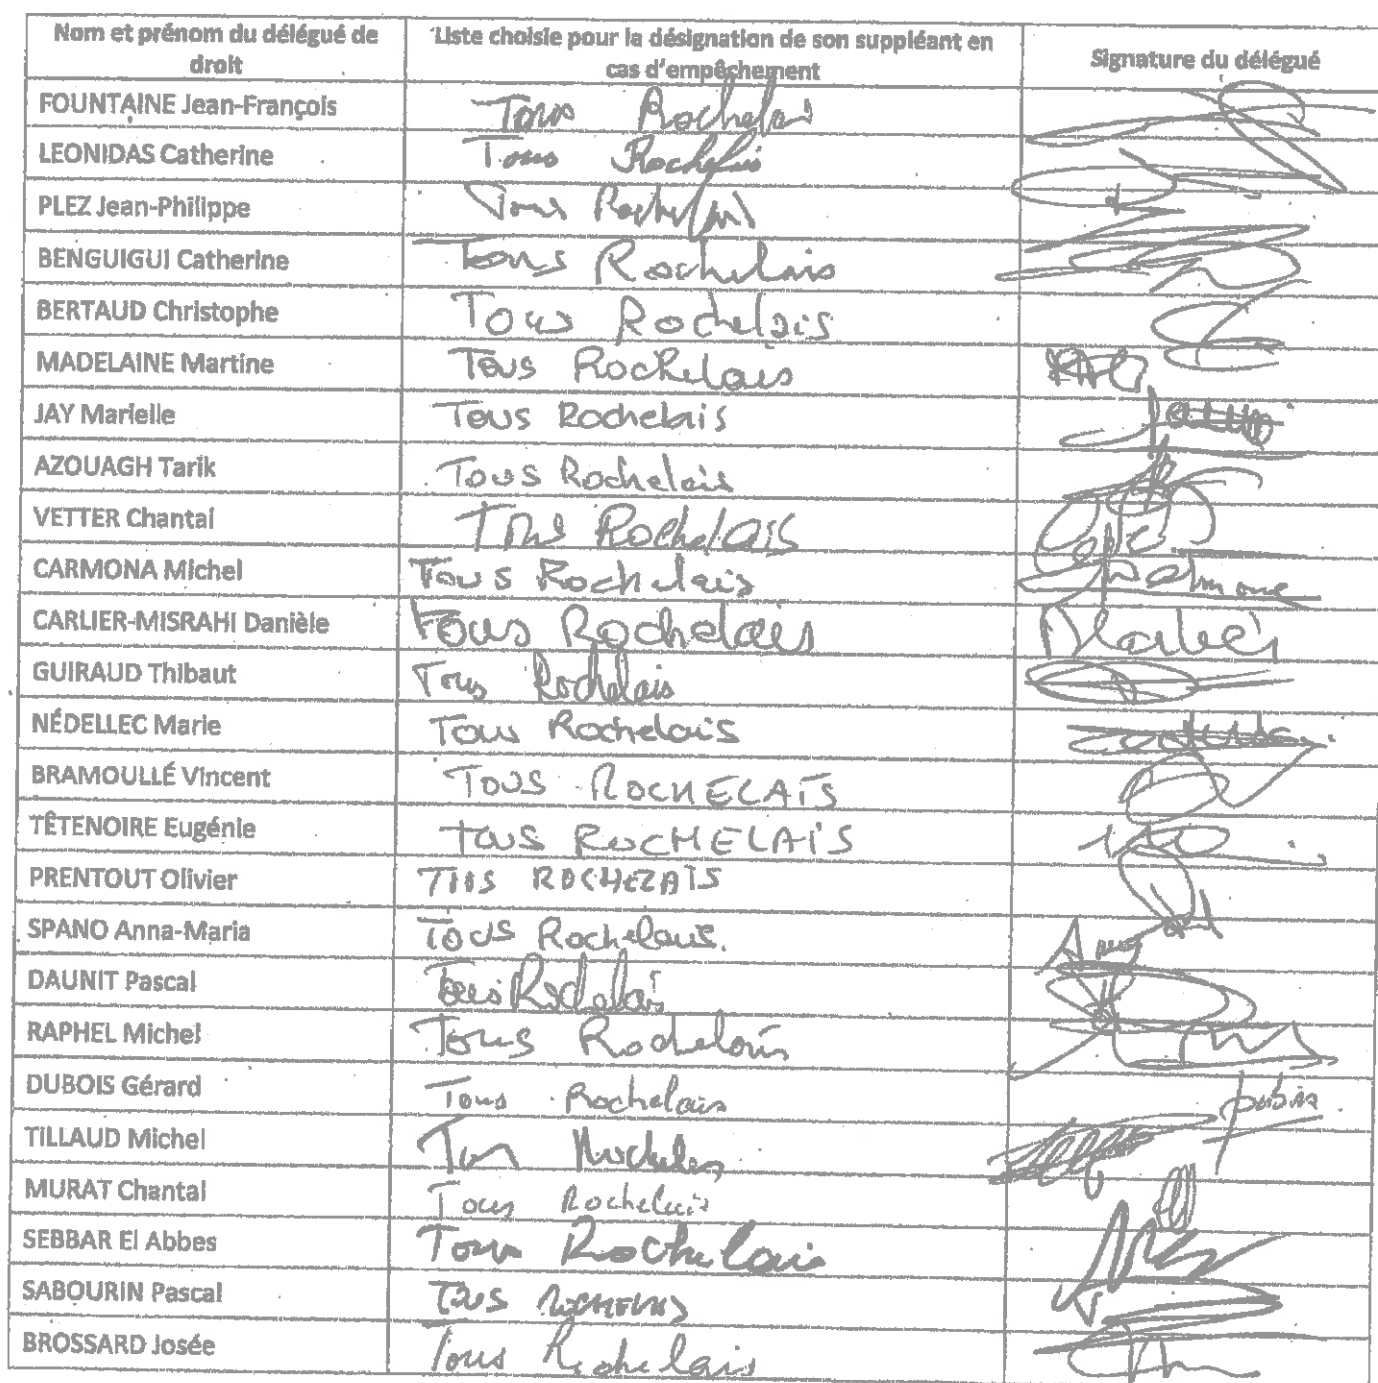 Nom et prénom du délégué de droit
Liste choisie pour la désignation de son suppléant en cas d'empêchement
Signature du délégué
FOUNTAINE Jean-François Tous Rochelais
LEONIDAS Catherine Tous Rochelais
PLEZ Jean-Philippe Tous Rochelais
BENGUIGUI Catherine Tous Rochelais
BERTAUD Christophe Tous Rochelais
MADELAINE Martine Tous Rochelais
JAY Marielle Tous Rochelais
AZOUAGH Tarik Tous Rochelais
VETTER Chantal Tous Rochelais
CARMONA Michel Tous Rochelais
CARLIER-MISRAHI Danièle Tous Rochelais
GUIRAUD Thibaut Tous Rochelais
NÉDELLEC Marie Tous Rochelais
BRAMOULLÉ Vincent TOUS ROCHELAIS
TÊTENOIRE Eugénie TOUS ROCHELAIS
PRENTOUT Olivier TOUS ROCHELAIS
SPANO Anna-Maria Tous Rochelais.
DAUNIT Pascal Tous Rochelais
RAPHEL Michel Tous Rochelais
DUBOIS Gérard Tous Rochelais
TILLAUD Michel Tous Rochelais
MURAT Chantal Tous Rochelais
SEBBAR El Abbes Tous Rochelais
SABOURIN Pascal TOUS ROCHELAIS
BROSSARD Josée Tous Rochelais